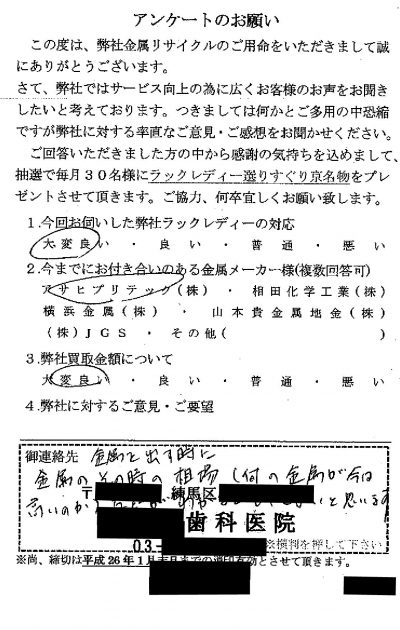 アンケートのお願い
この度は、弊社金属リサイクルのご用命をいただきまして誠
にありがとうございます。
さて、弊社ではサービス向上の為に広くお客様のお声をお聞き
したいと考えております。つきましては何かとご多用の中恐縮
ですが弊社に対する率直なご意見・ご感想をお聞かせください。
ご回答いただきました方の中から感謝の気持ちを込めまして、
抽選で毎月30名様にラックレディー選りすぐり京名物をプレ
ゼントさせて頂きます。ご協力、何卒宜しくお願い致します。
1.今回お伺いした弊社ラックレディーの対応
大変良い・良い・普通・悪い
2.今までにお付き合いのある金属メーカー様(複数回答可)
アサヒプリテック(株)・相田化学工業(株)
横浜金属(株)・山本貴金属地金(株)
(株)JGS・その他( )
3.弊社買取金額について
大変良い・良い・普通・悪い
4.弊社に対するご意見・ご要望
御連絡先 金属を出す時に
金属のその時の相場(何の金属が今は
〒 練馬区
高いのか と思います
歯科医院
03- ※横判を押して下さい
※尚、締切は平成26年1月末日までの消印有効とさせて頂きます。